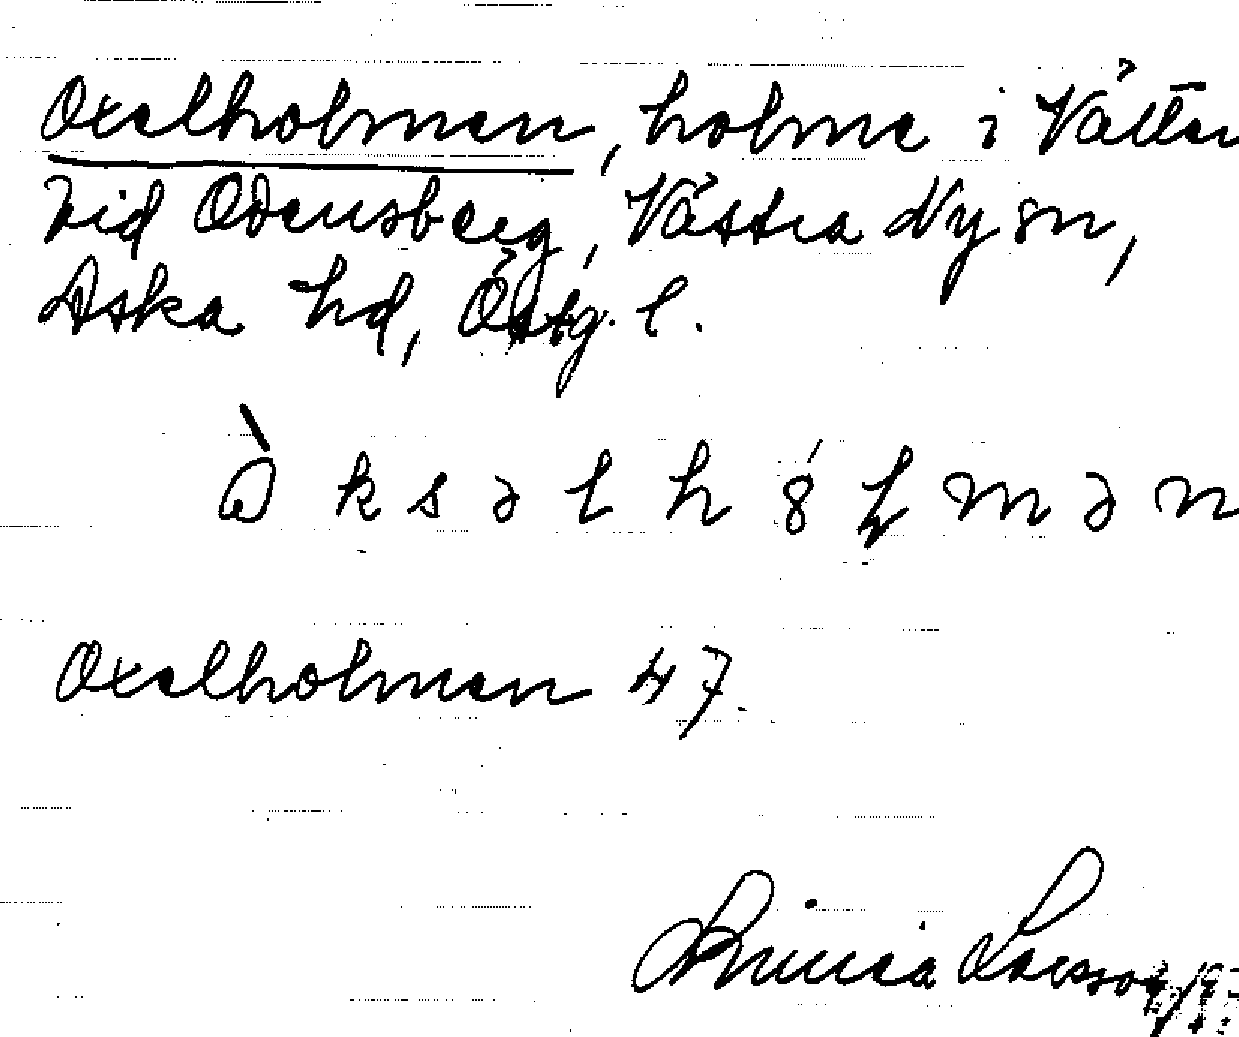 Oxelholmen, holme i Vättern
vid Odensberg, Västra Ny sn,
Aska hd, Östg. l.
Oxelholmen 47.
Linnéa Larsson